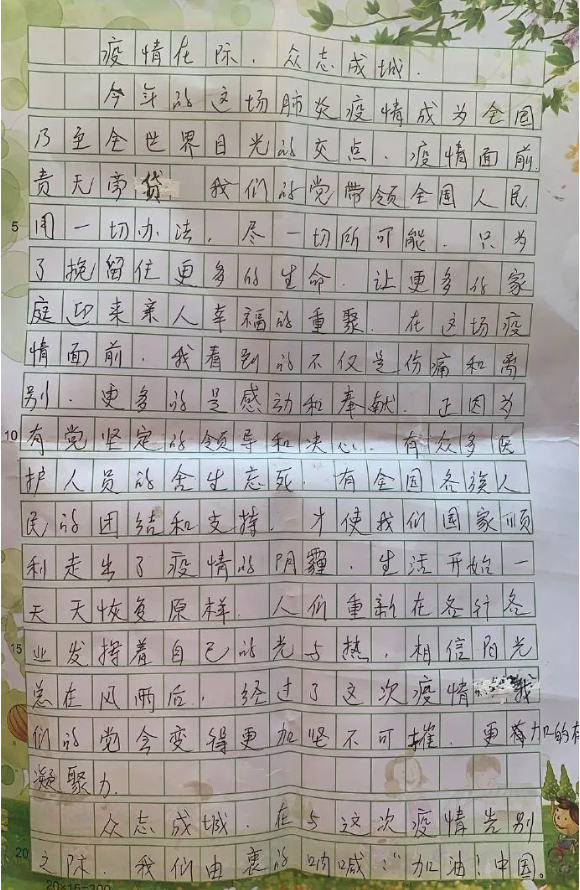 疫情在际，众志成城．
今年的这场肺炎疫情成为全国
乃至全世界目光的交点．疫情面前．
责天旁贷　我们的党带领全国人民
5 用一切办法，尽一切所可能．只为
了挽留住更多的生命．让更多的家
庭迎来亲人幸福的重聚．在这场疫
情面前．我看到的不仅是伤痛和离
别．更多的是感动和奉献．正因为
10 有党坚定的领导和决心．有众多医
护人员的舍生忘死．有全国各族人
民的团结和支持．才使我们国家顺
利走出了疫情的阴霾．生活开始一
天天恢复原样．人们重新在各行各
15 业发挥着自己的光与热．相信阳光
总在风雨后．经过了这次疫情 我
们的党会变得更加坚不可摧．更加的有
凝聚力．
众志成城．在与这次疫情告别
20 之际．我们由衷的呐喊："加油！中国。
20×15=300